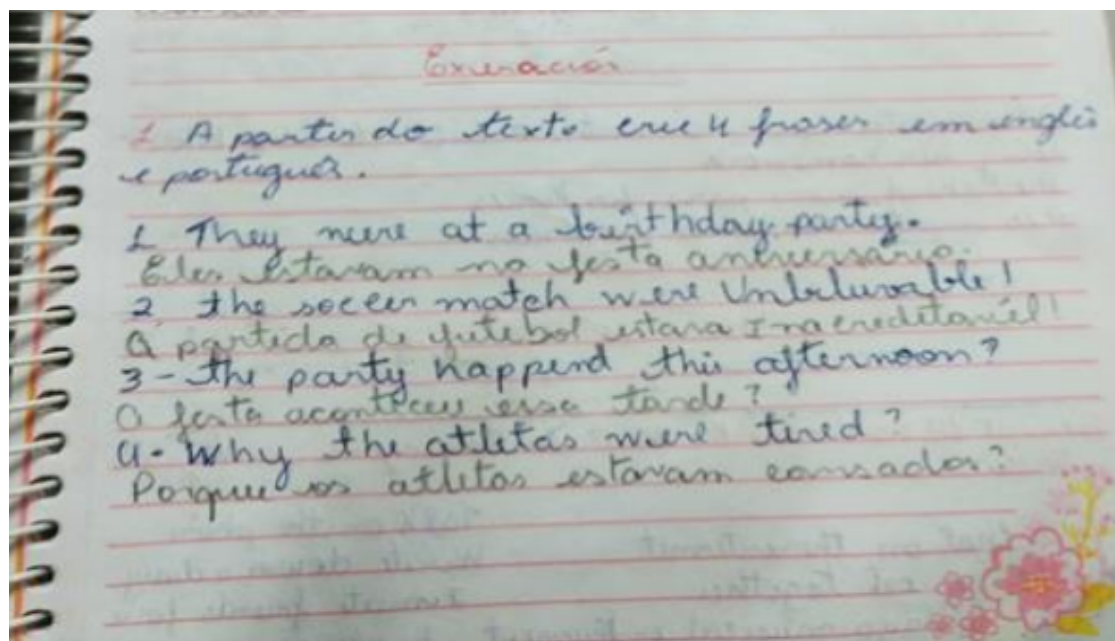 1 A partir do texto crie 4 frases em inglês
e português.
1 They were at a birthday party.
Eles estavam na festa aniversário.
2 the soccer match were Unbeluvable!
A partida de futebol estava Inacreditável!
3- the party happend this afternoon?
A festa aconteceu essa tarde?
4- Why the atletas were tired?
Porque os atletas estavam cansados?